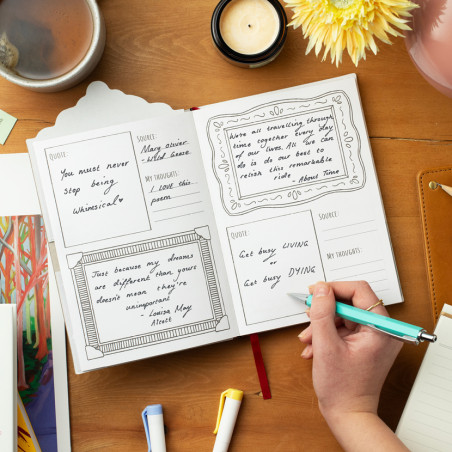 QUOTE:
You must never
stop being
whimsical
SOURCE:
Mary Oliver
- Wild Geese
MY THOUGHTS:
I love this
poem
Just because my dreams
are different than yours
doesn't mean they're
unimportant
- Louisa May
Alcott
We're all travelling through
time together every day
of our lives. All we can
do is do our best to
relish this remarkable
ride - About Time
QUOTE:
Get busy LIVING
or
Get busy DYING
SOURCE:
MY THOUGHTS: